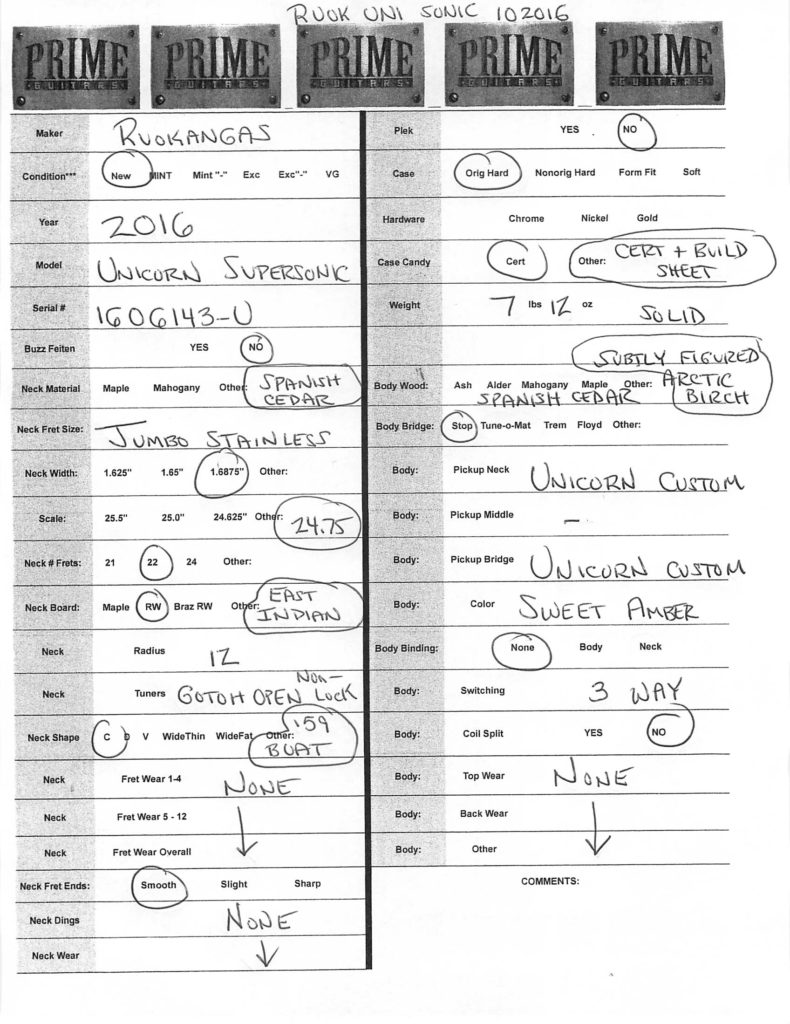 RUOK UNI SONIC 102016
PRIME GUITARS PRIME GUITARS PRIME GUITARS PRIME GUITARS PRIME GUITARS
Maker RUOKANGAS
Condition*** New MINT Mint "-" Exc Exc"-" VG
Year 2016
Model UNICORN SUPERSONIC
Serial # 1606143-U
Buzz Feiten YES NO
Neck Material Maple Mahogany Other: SPANISH CEDAR
Neck Fret Size: JUMBO STAINLESS
Neck Width: 1.625" 1.65" 1.6875" Other:
Scale: 25.5" 25.0" 24.625" Other: 24.75
Neck # Frets: 21 22 24 Other:
Neck Board: Maple RW Braz RW Other: EAST INDIAN
Neck Radius 12
Neck Tuners GOTOH OPEN NON-LOCK
Neck Shape C D V WideThin WideFat Other: '59 BOAT
Neck Fret Wear 1-4 NONE
Neck Fret Wear 5 - 12
Neck Fret Wear Overall
Neck Fret Ends: Smooth Slight Sharp
Neck Dings NONE
Neck Wear
Plek YES NO
Case Orig Hard Nonorig Hard Form Fit Soft
Hardware Chrome Nickel Gold
Case Candy Cert Other: CERT + BUILD SHEET
Weight 7 lbs 12 oz SOLID
SUBTLY FIGURED
Body Wood: Ash Alder Mahogany Maple Other: ARCTIC
SPANISH CEDAR BIRCH
Body Bridge: Stop Tune-o-Mat Trem Floyd Other:
Body: Pickup Neck UNICORN CUSTOM
Body: Pickup Middle –
Body: Pickup Bridge UNICORN CUSTOM
Body: Color SWEET AMBER
Body Binding: None Body Neck
Body: Switching 3 WAY
Body: Coil Split YES NO
Body: Top Wear NONE
Body: Back Wear
Body: Other
COMMENTS: